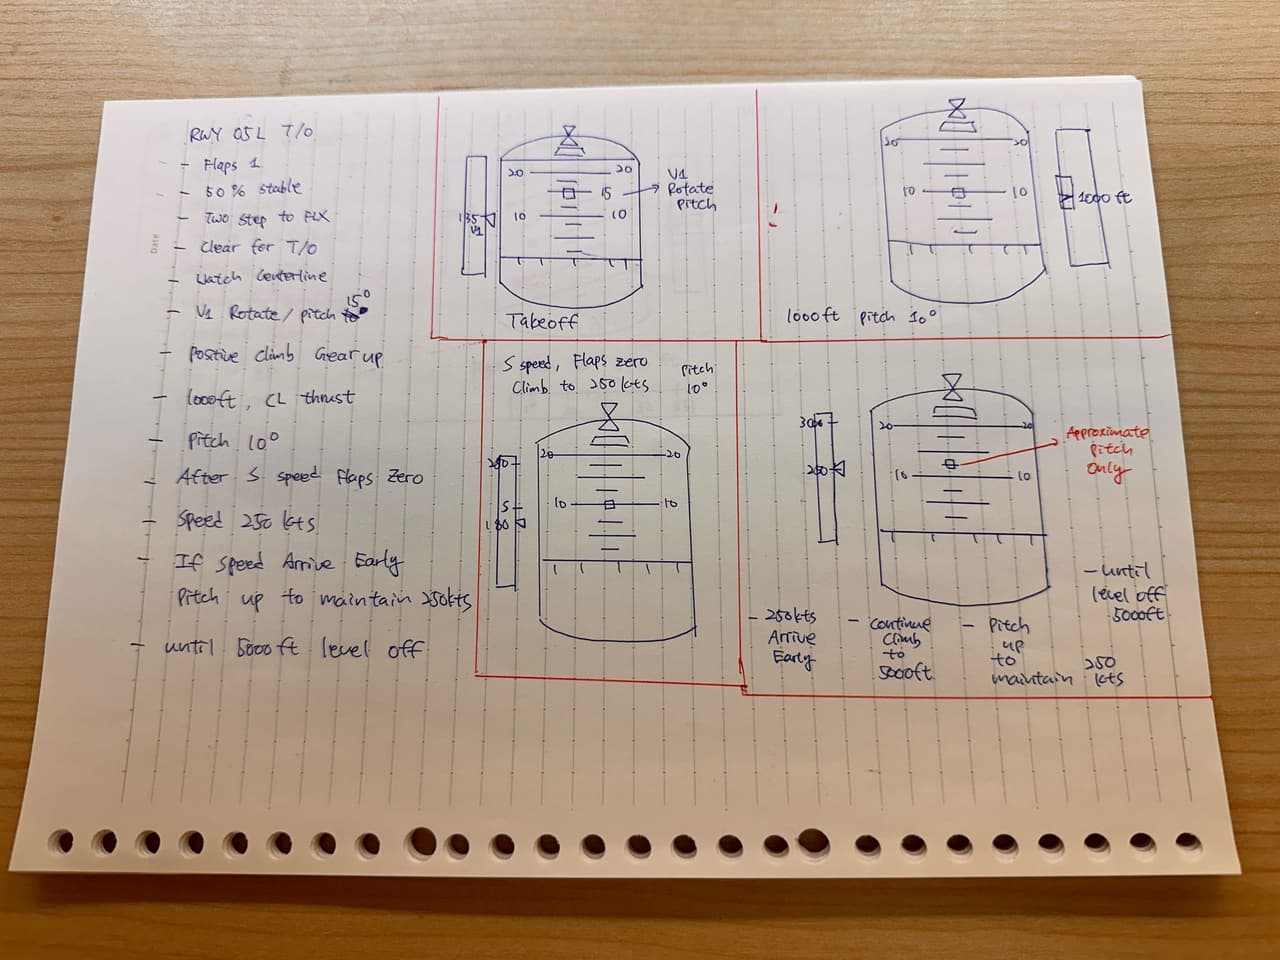 Date
RWY 05L T/O
- Flaps 1
- 50% stable
- Two step to FLX
- Clear for T/O
- Watch Centerline
- V1 Rotate/pitch 15°
- Positive climb Gear up
- 1000ft, CL thrust
- Pitch 10°
- After S speed Flaps Zero
- Speed 250 kts
- If speed Arrive Early
Pitch up to maintain 250kts
- until 5000ft level off
20 20
15
10 10
135
V1
V1
Rotate
Pitch
Takeoff
!
20 20
10 10
1000 ft
1000ft pitch 10°
S speed, Flaps zero
Climb to 250 kts
Pitch
10°
20 20
10 10
S
180
300
250
20 20
10 10
Approximate
Pitch
Only
- 250kts
Arrive
Early
- Continue
Climb
to
5000ft
- Pitch
up
to
maintain 250
kts
- until
level off
5000ft